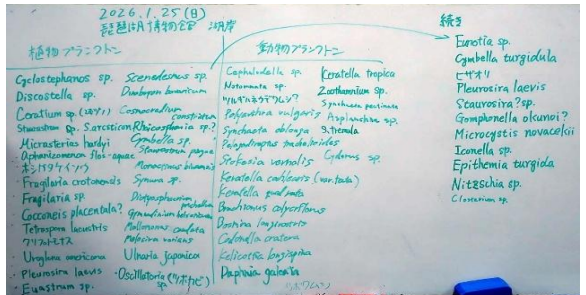 2026.1.25(日)
琵琶湖博物館 湖岸
植物プランクトン
Cyclostephanos sp.
Discostella sp.
Ceratium sp.
Staurastrum sp. S.arcticon
Micrasterias hardyi
Aphanizomenon flos-aquae
ホシガタケイソウ
・Fragilaria crotonensis
Fragilaria sp.
Cocconeis placentula?
Tetraspora lacustris
クリプトモナス
・Uroglena americana
・Pleurosira laevis
Euastrum sp.
Scenedesmus sp.
Cosmocladium constrictum
Rhicosphenia sp.?
Cymbella sp.
Synura sp.
Mallomonas caudata
Melosira varians
Ulnaria japonica
・Oscillatoria sp. (ツボカビ)
動物プランクトン
Cephalodella sp.
Notommata sp.
Polyarthra vulgaris
Synchaeta oblonga
Stefosia vernalis
Keratella cochlearis (var. tecta)
Keratella quadrata
Brachionus calyciflorus
Bosmina longirostris
Codonella cratera
Kellicottia longispina
Daphnia galeata
ツボワムシ
Keratella tropica
Zoothamnium sp.
Synchaeta pectinata
Asplanchna sp.
S. tremula
続き
Eunotia sp.
Cymbella turgidula
ヒザオリ
Pleurosira laevis
Staurosira? sp.
Gomphonella okunoi?
Microcystis novacekii
Iconella sp.
Epithemia turgida
Nitzschia sp.
Closterium sp.